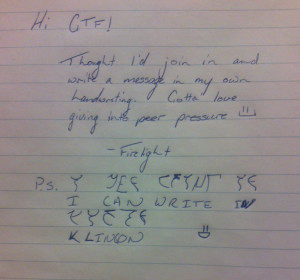 Hi CTF!
Thought I'd join in and
write a message in my own
handwriting. Gotta love
giving into peer pressure
-Firelight
P.s.
I CAN WRITE IN
KLINGON